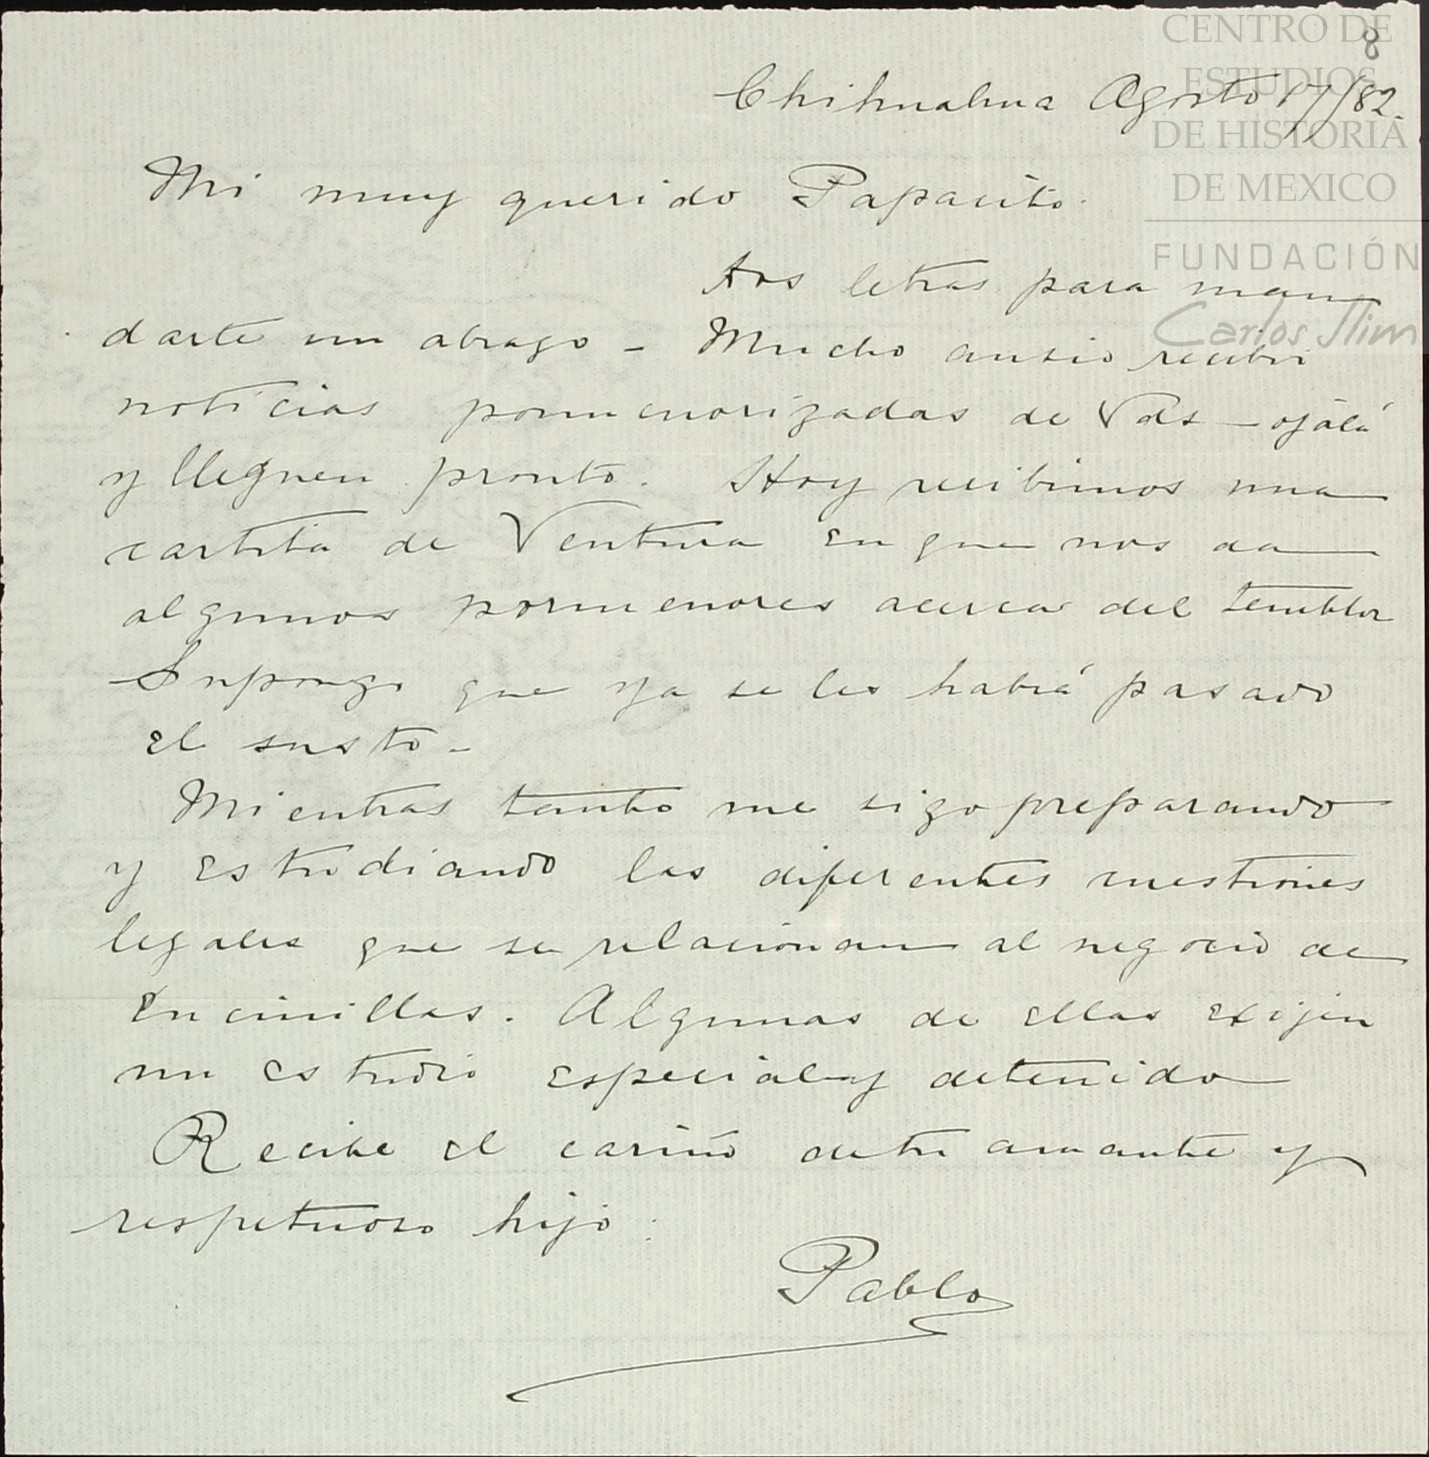 CENTRO DE
8
ESTUDIOS
DE HISTORIA
DE MEXICO
FUNDACIÓN
Carlos Slim
Chihuahua Agosto 17/82.
Mi muy querido Papacito.
Dos letras para man
darte un abrazo - Mucho ansio recibir
noticias pormenorizadas de Vds - ojalá
y lleguen pronto. Hoy recibimos una
cartita de Ventura en que nos da
algunos pormenores acerca del temblor
Supongo que ya se les habrá pasado
el susto -
Mientras tanto me sigo preparando
y estudiando las diferentes cuestiones
legales que se relacionan al negocio de
Encinillas. Algunas de ellas exijen
un estudio especial y detenido
Recibe el cariño de tu amante y
respetuoso hijo:
Pablo